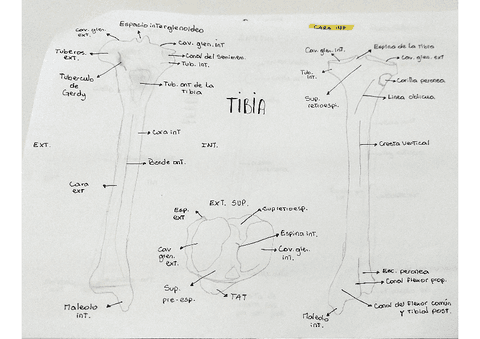 Espacio interglenoideo
Cav. glen.
ext.
Cav. glen. int
Tuberos.
ext.
Canal del semimem.
Tub. int.
Tuberculo
de
Gerdy
Tub. ant de la
tibia
TIBIA
Cara int
EXT.
INT.
Borde ant.
Cara
ext
Maleolo
int.
EXT. SUP.
Esp.
ext
Sup. retroesp.
Espina int.
Cav
glen.
ext.
Cav. glen.
int.
Sup.
pre-esp.
TAT
CARA INF
Cav. glen. int.
Espina de la tibia
Cav. glen. ext
Tub.
int.
Carilla peronea
Sup.
retroespi.
Linea oblicua
Cresta vertical
Esc. peronea
Canal flexor prop.
Canal del flexor común
y tibial post.
Maleolo
int.